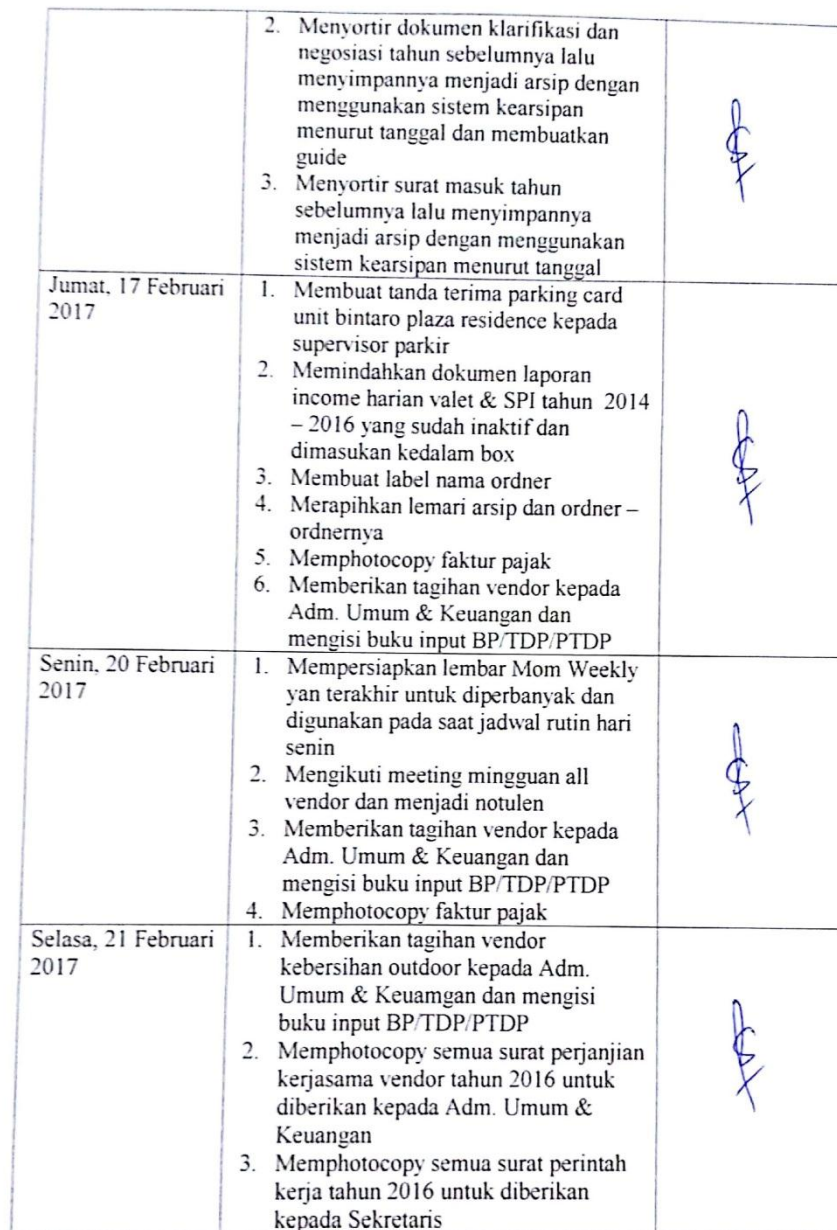 2. Menyortir dokumen klarifikasi dan
negosiasi tahun sebelumnya lalu
menyimpannya menjadi arsip dengan
menggunakan sistem kearsipan
menurut tanggal dan membuatkan
guide
3. Menyortir surat masuk tahun
sebelumnya lalu menyimpannya
menjadi arsip dengan menggunakan
sistem kearsipan menurut tanggal
Jumat, 17 Februari
2017
1. Membuat tanda terima parking card
unit bintaro plaza residence kepada
supervisor parkir
2. Memindahkan dokumen laporan
income harian valet & SPI tahun 2014
– 2016 yang sudah inaktif dan
dimasukan kedalam box
3. Membuat label nama ordner
4. Merapihkan lemari arsip dan ordner –
ordnernya
5. Memphotocopy faktur pajak
6. Memberikan tagihan vendor kepada
Adm. Umum & Keuangan dan
mengisi buku input BP/TDP/PTDP
Senin, 20 Februari
2017
1. Mempersiapkan lembar Mom Weekly
yan terakhir untuk diperbanyak dan
digunakan pada saat jadwal rutin hari
senin
2. Mengikuti meeting mingguan all
vendor dan menjadi notulen
3. Memberikan tagihan vendor kepada
Adm. Umum & Keuangan dan
mengisi buku input BP/TDP/PTDP
4. Memphotocopy faktur pajak
Selasa, 21 Februari
2017
1. Memberikan tagihan vendor
kebersihan outdoor kepada Adm.
Umum & Keuamgan dan mengisi
buku input BP/TDP/PTDP
2. Memphotocopy semua surat perjanjian
kerjasama vendor tahun 2016 untuk
diberikan kepada Adm. Umum &
Keuangan
3. Memphotocopy semua surat perintah
kerja tahun 2016 untuk diberikan
kepada Sekretaris